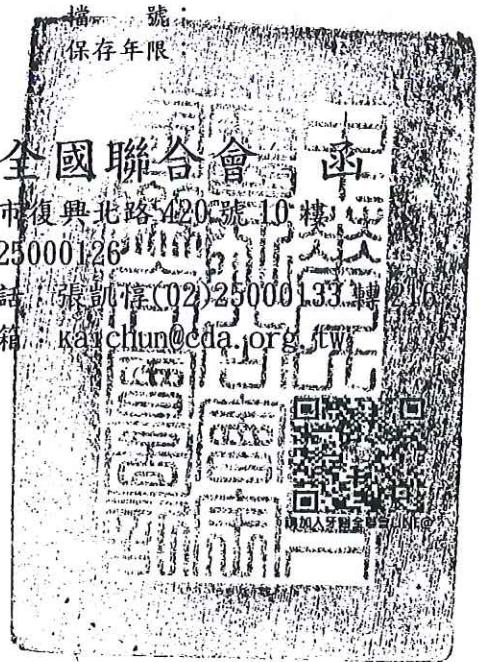 檔 號：
保存年限：
全國聯合會 函
市復興北路420號10樓
25000126
話：張凱惇(02)25000133轉216
箱：kaichun@cda.org.tw
請加入牙醫全聯會LINE@